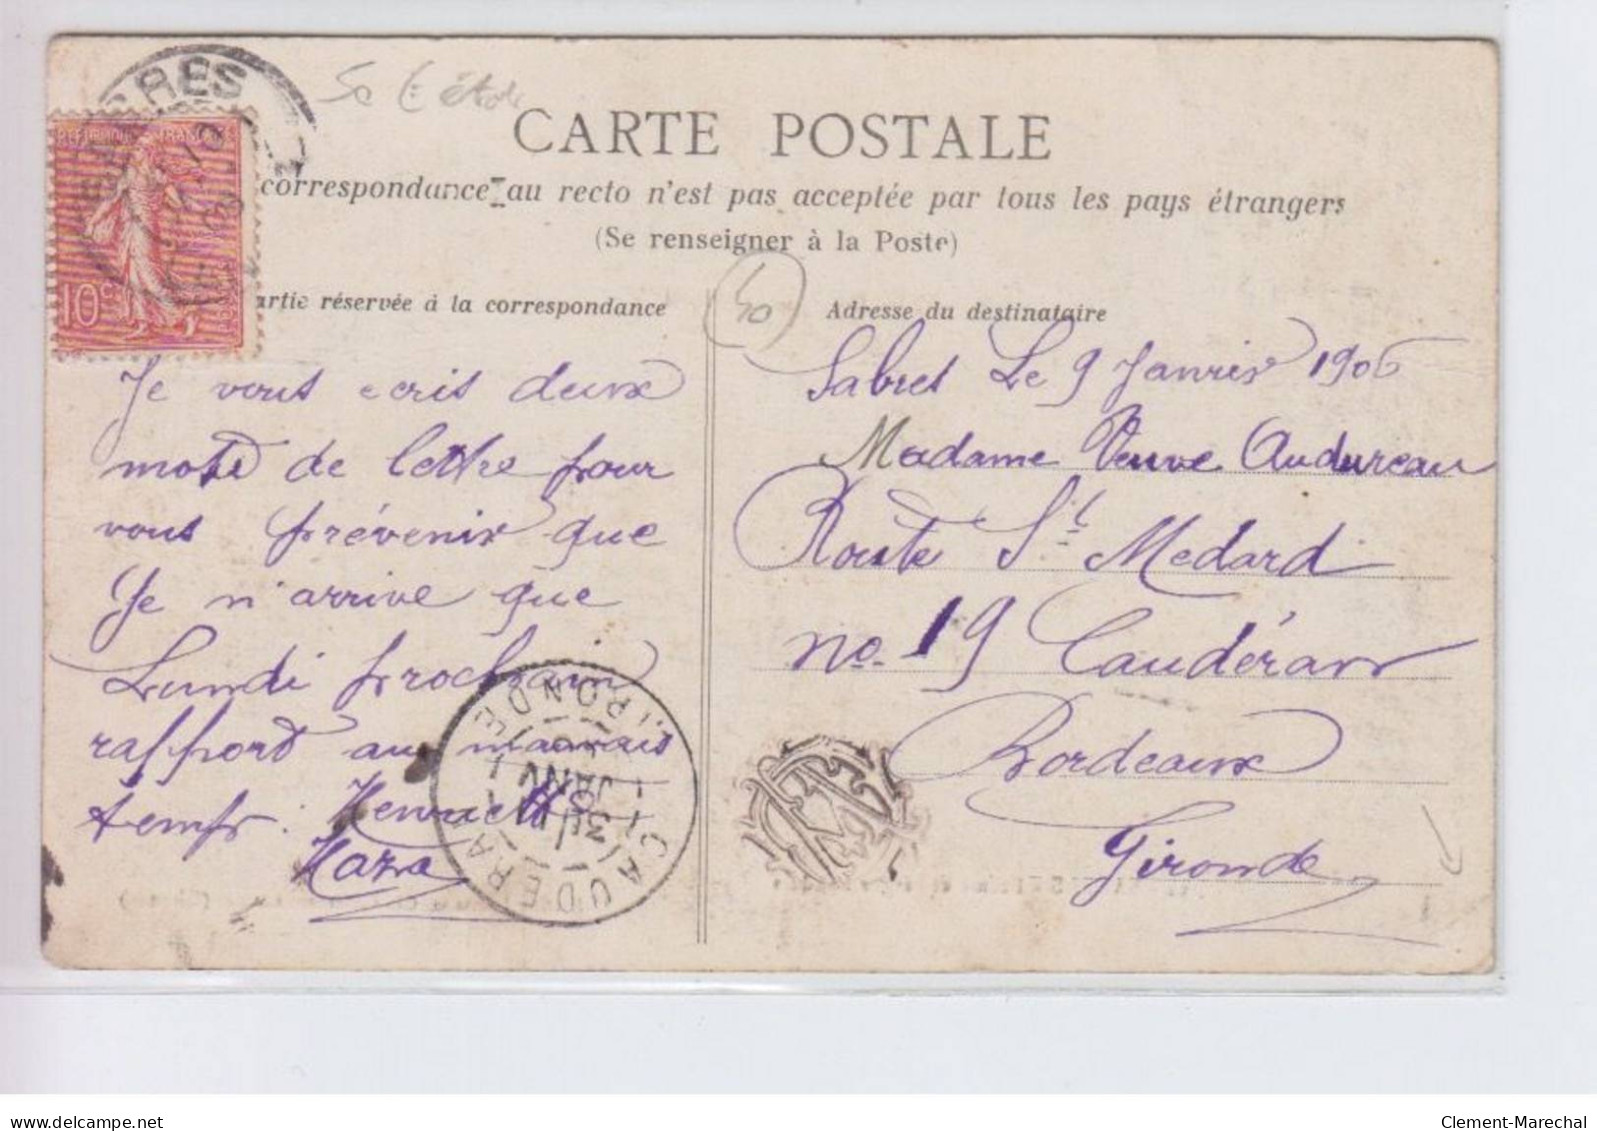 RES
RÉPUBLIQUE FRANÇAISE
10c
CARTE POSTALE
correspondance au recto n'est pas acceptée par tous les pays étrangers
(Se renseigner à la Poste)
artie réservée à la correspondance
50
Adresse du destinataire
Je vous ecris deux
mots de lettre pour
vous prévenir que
Je n'arrive que
Lundi prochain
rapport au mauvais
temps. Henriette
Sabres Le 9 Janvier 1906
Madame Veuve Audureau
Route St Medard
no. 19 Caudéran
Bordeaux
Gironde
CAUDERAN
GIRONDE
JANV
Clement-Marechal